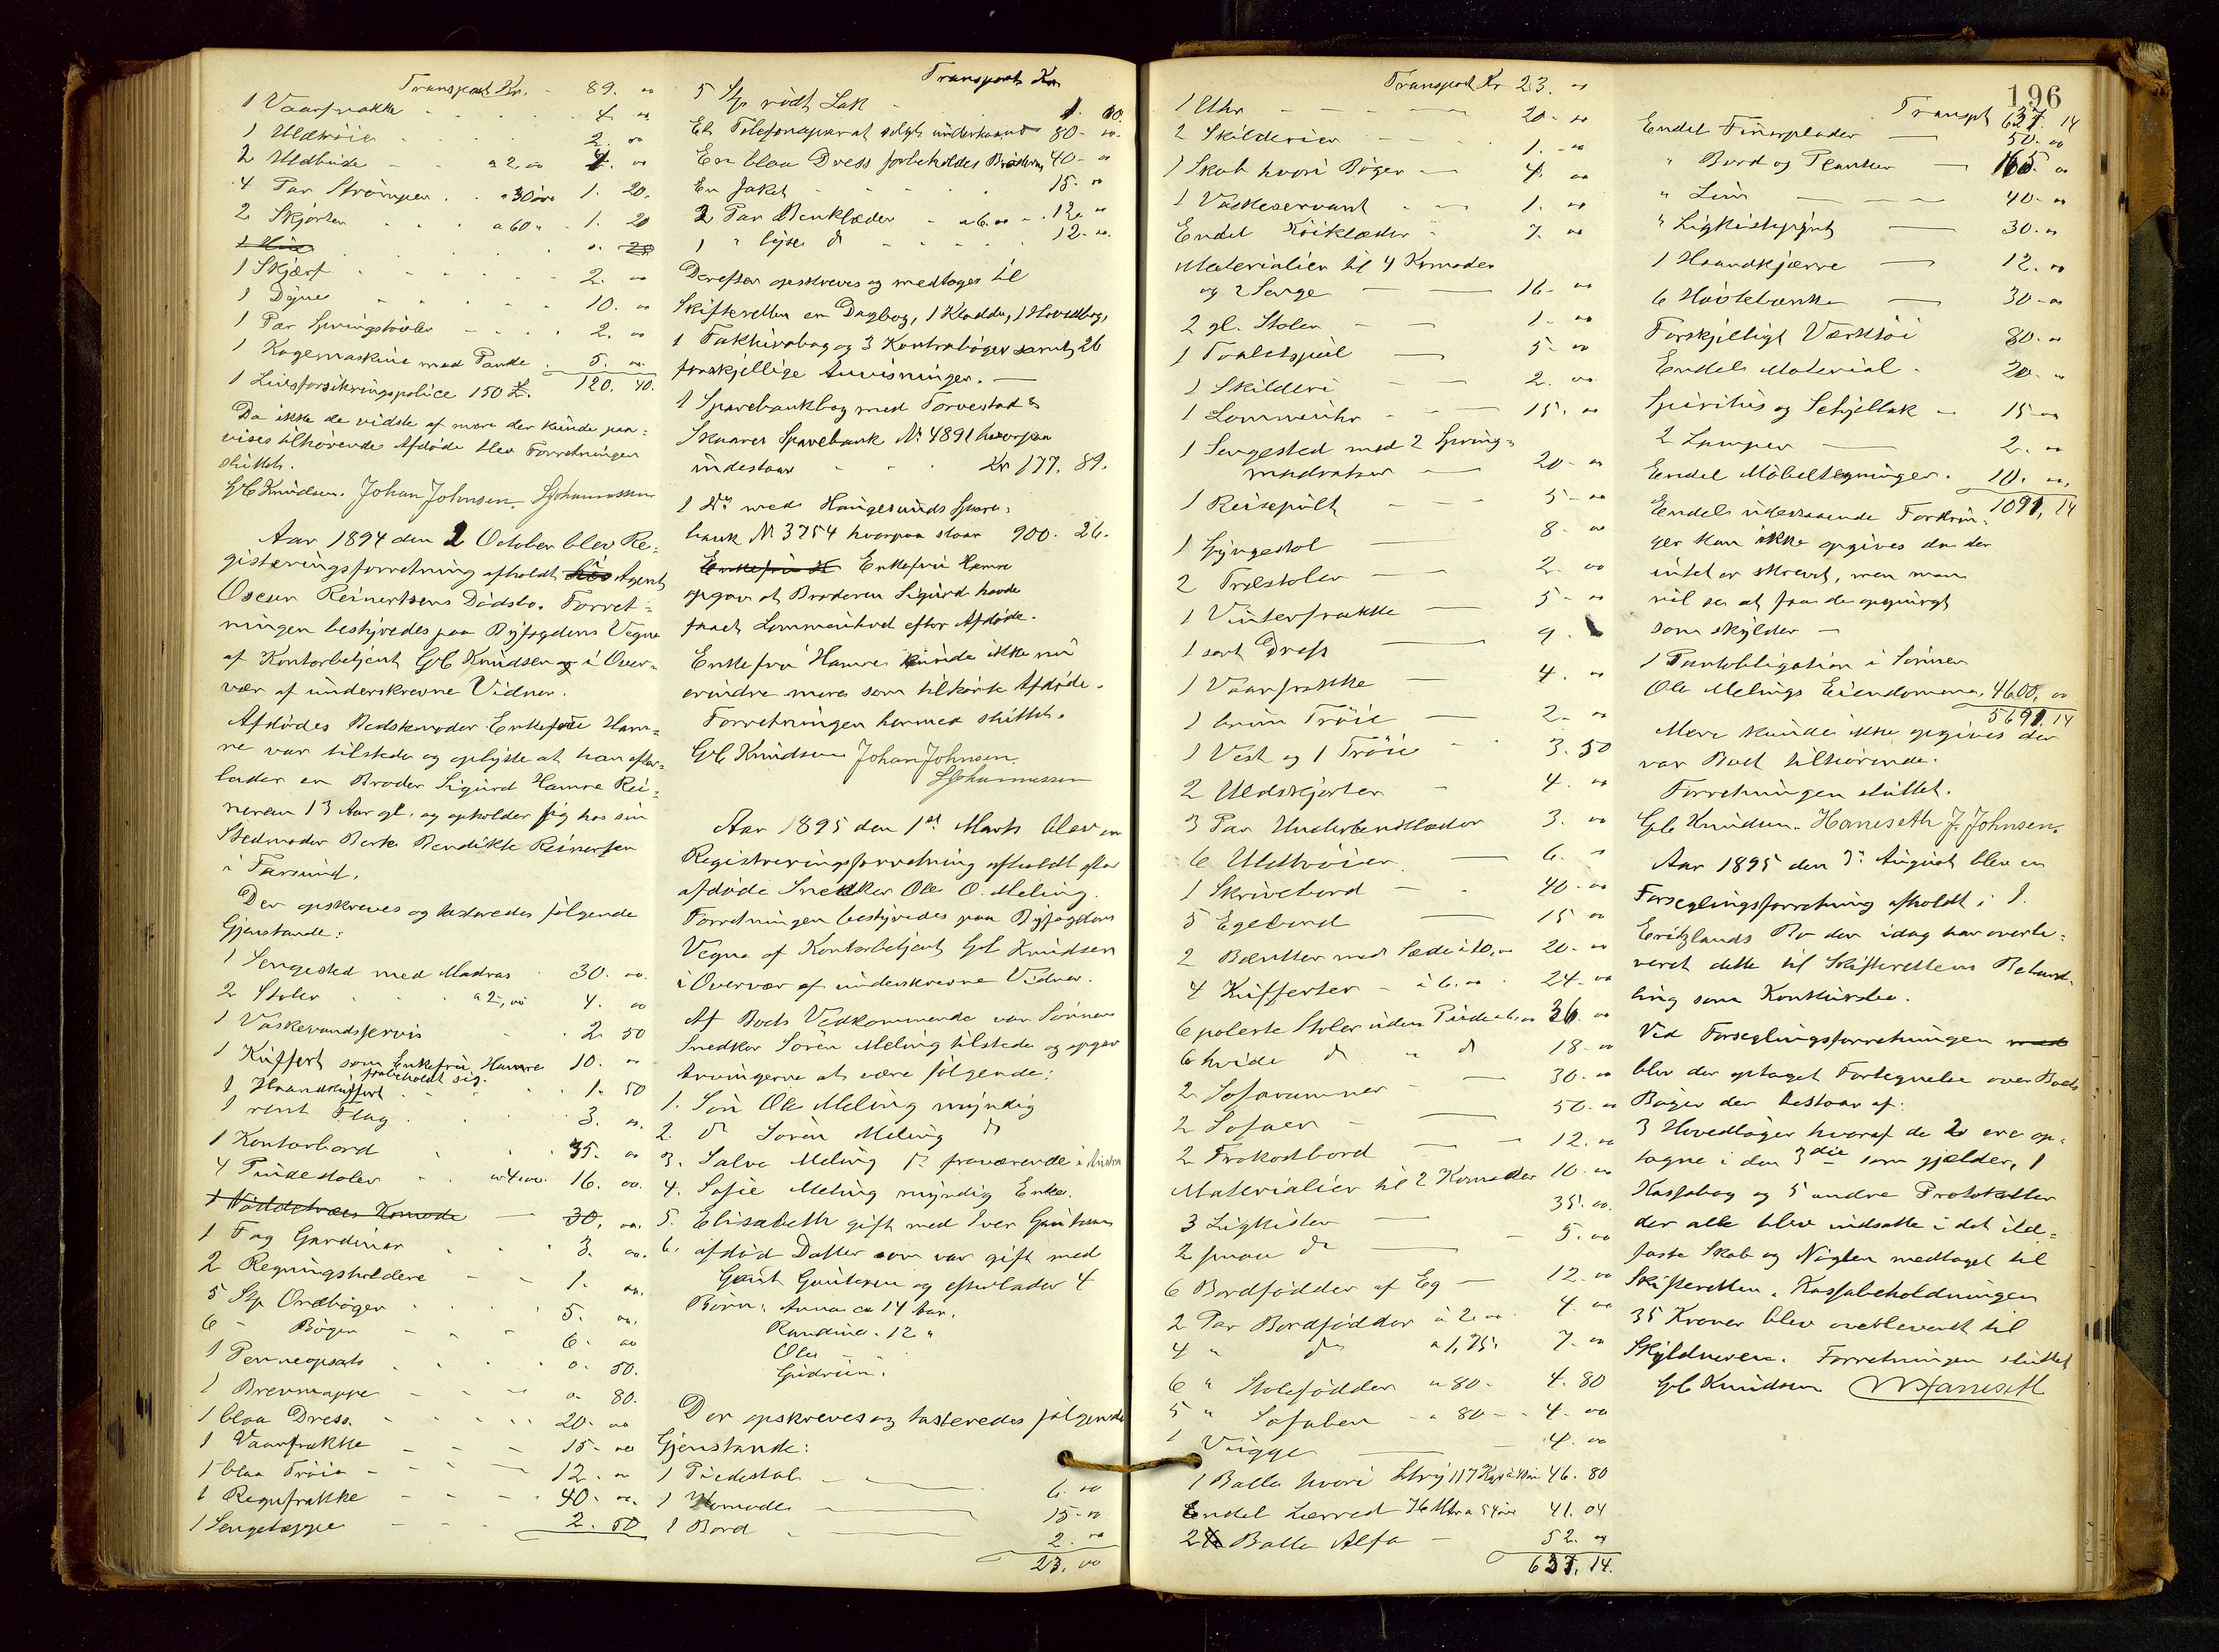 Transport Kr. - 89. oo
1 Vaarfrakke . . . . 4. oo
1 Uldtröie . . . . 2. oo
2 Uldbude - - a 2. oo 4. oo
4 Par Strömper . . a 30 öre 1. 20.
2 Skjorter . . a 60 " . 1. 20
1 Skjærf . . . . 2. oo
1 Dyne . . . . 10. oo
1 Par Springstövler - - - . 2. oo
1 Kogemaskine med Pande . 5. oo.
1 Livsforsikringspolice 150 £. 120. 40.
Da ikke de vidste af mere der kunde paa=
vises tilhörende Afdöde blev Forretningen
sluttet.
GC Knudsen. Johan Johnsen. SJohannessen
Aar 1894 den 2 October blev Re=
gistreringsforretning afholdt hos Agent
Oscar Reinertsens Dödsbo. Forret=
ningen bestyredes paa Byfogdens Vegne
af Kontorbetjent GC Knudsen og i Over=
vær af underskrevne Vidner.
Afdödes Bedstemoder Enkefrue Ham=
re var tilstede og oplyste at han efter=
lader en Broder Sigurd Hamre Rei=
nersen 13 Aar gl. og opholder sig hos sin
Stedmoder Berte Bendikte Reinersen
i Farsund.
Der opskreves og taxeredes fölgende
Gjenstande:
1 Sengested med Madras . 30. oo.
2 Stoler . . . a 2, oo 4. oo
1 Vaskevandsservis . . 2. 50
1 Kuffert som Enkefrue Hamre 10. oo
forbeholdt sig.
1 Haandkuffert . . . 1. 50
1 rent Flag . . . . 3. oo.
1 Kontorbord . . . 35. oo
4 Pindestoler . . a 4. oo. 16. oo.
1 Nöddetræes Komode - 30. oo.
1 Fag Gardiner . . . 3. oo.
2 Regningsholdere - - 1. oo.
5 Stp Ordböger . . . . 5. oo.
6 - Böger - - . 6. oo
1 Penneopsats . . . . o. 50.
1 Brevmappe - - - o. 80.
1 blaa Dress. . . . . 20. oo
1 Vaarfrakke - - - 15. oo
1 blaa Tröie - - - - 12. oo
1 Regnfrakke - - - . 40. oo.
1 Sengetæppe - - . 2. 50
Transport Kr.
5 Stp rödt Lak - 1. 00.
Et Telefonaparat solgt underhaanden 80- oo.
En blaa Dress forbeholdes Broderen 40- oo
En Jaket - - - - 15. oo
2 Par Benklæder - a 6. oo - . 12. oo
1 " lyse do - - - 12. oo.
Derefter opskreves og medtoges til
Skifteretten en Dagbog, 1 Kladde, 1 Hovedbog,
1 Fakturabog og 3 Kontrabøger samt 26
forskjellige Anvisninger. —
1 Sparebankbog med Torvestad &
Skaarer Sparebank No 4891 hvorpaa
indestaar - . . Kr 177. 89.
1 Do med Haugesunds Spare=
bank No 3754 hvorpaa staar 900. 26.
Enkefrue H Enkefrue Hamre
opgav at Broderen Sigurd havde
faaet Lommeuhret efter Afdöde.
Enkefrue Hamre kunde ikke nu
erindre mere som tilhörte Afdöde.
Forretningen hermed sluttet.
GC Knudsen Johan Johnsen.
SJohannessen
Aar 1895 den 1st Marts blev en
Registreringsforretning afholdt efter
afdöde Snekker Ole O. Meling.
Forretningen bestyredes paa Byfogdens
Vegne af Kontorbetjent GC Knudsen
i Overvær af underskrevne Vidner.
Af Boets Vedkommende var Sönnen
Snedker Sören Meling tilstede og opgav
Arvingerne at være fölgende:
1. Sön Ole Meling myndig
2. do Sören Meling do
3. Salve Meling fraværende i
4. Sofie Meling myndig Enke.
5. Elisabeth gift med Iver Gautesen
6. afdöd Datter som var gift med
Gaut Gautesen og efterlader 4
Börn: Anna ca 14 Aar.
Randine . 12 "
Ole —
Gudrun.
Der opskreves og taxeredes fölgende
Gjenstande:
1 Piedestal - — 6. oo
1 Komode — 15- oo
1 Bord . — 2. oo
23. oo
Transport Kr 23. oo
1 Uhr - - - — 20- oo
2 Skilderier - - - 1. oo
1 Skab hvori Böger - — 4. oo
1 Vaskeservant - - - 1. oo
Endel Köiklæder - 7. oo
Materialier til 4 Komoder
og 2 Senge — — 16- oo
2 gl. Stoler - — 1. oo
1 Toaletspeil — 5- oo
1 Skilderi - — 2. oo
1 Lommeuhr - - — 15. oo
1 Sengested med 2 Spring=
madratser - — 20- oo
1 Reisepult - - - 5- oo
1 Gyngestol — 8- oo
2 Træstoler — 2. oo
1 Vinterfrakke — 5- oo
1 sort Dress — 9.
1 Vaarfrakke — 4. oo
1 brun Tröie — 2. oo
1 Vest og 1 Tröie - . 3. 50
2 Uldskjorter - 4. oo
3 Par Underbenklæder 3. oo
6 Uldtröier — 6. oo
1 Skrivebord - . 40- oo
5 Egebord — 15 oo
2 Bænker med Sæde a 10, oo 20- oo
4 Kufferter - a 6. oo . 24. oo
6 polerte Stoler uden Pude a 6, oo 36. oo
6 hvide do " do 18- oo
2 Sofarammer - — 30- oo
2 Sofaer - — 50- oo
2 Frokostbord — - 12. oo
Materialier til 2 Komoder 10- oo
3 Ligkister — 35. oo.
2 smaa do — - 5. oo
6 Bordfödder af Eg — 12. oo
2 Par Bordfödder a 2. oo . 4. oo
4 " do a 1,75 7. oo
6 " Stolefödder a 80 - 4. 80
5 " Sofaben - a 80 - - 4. oo
1 Vugge — 4. oo
1 Balle hvori Stry 117 Kg a 40 öre 46. 80
Endel Lærred 76 Mtr a 54 öre 41. 04
2 Balle Alfa - 52. oo
637. 14.
196
Transpt 637. 14
Endel Finerplader — 50- oo
" Bord og Planker — 165. oo
" Lim — - - 40- oo
" Ligkistepynt — 30. oo
1 Haandkjærre — 12. oo
6 Hövlebænke — 30- oo
Forskjelligt Værktöi 80. oo
Endel Material . 20. oo
Spiritus og Schjellak - 15- oo
2 Lamper — 2. oo
Endel Möbeltegninger. 10. oo.
1091. 14
Endel udestaaende Fordrin=
ger kan ikke opgives da der
intet er skrevet, men man
vil se at faa de opspurgt
som skylder —
1 Pantobligation i Sönnen
Ole Melings Eiendommene, 4600. oo
5691. 14
Mere kunde ikke opgives der
var Boet tilhörende.
Forretningen sluttet.
GC Knudsen. Hanseth J. Johnsen.
Aar 1895 den August blev en
Forseglingsforretning afholdt i J.
Eritzlands Bo der idag har overle=
veret dette til Skifterettens Behand=
ling som Konkursbo.
Ved Forseglingsforretningen med
blev der optaget Fortegnelse over Boets
Böger der bestaar af:
3 Hovedböger hvoraf de 2 ere op=
tagne i den 3die som gjælder, 1
Kassabog og 5 andre Protokoller
der alle blev indsatte i det ild=
faste Skab og Nöglen medtaget til
Skifteretten. Kassabeholdningen
35 Kroner blev overleveret til
Skyldneren. Forretningen sluttet
GC Knudsen Hanseth